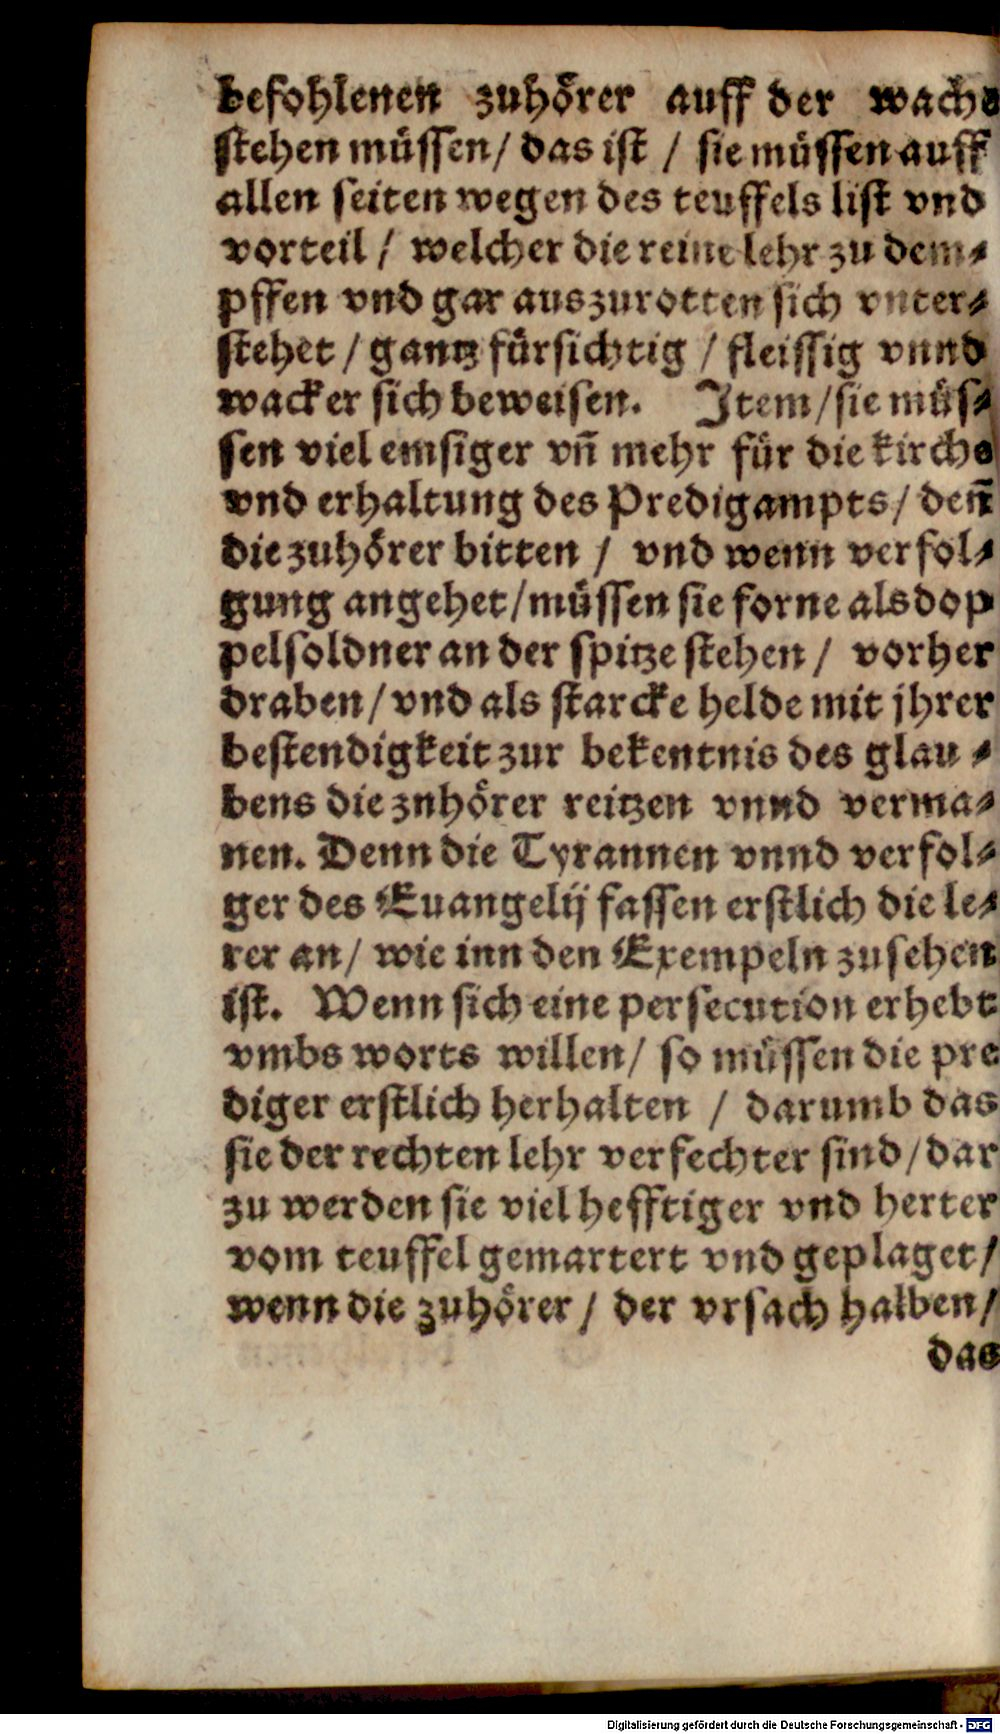 befohlenen zuhörer auff der wache
stehen müssen/ das ist / sie müssen auff
allen seiten wegen des teuffels list vnd
vorteil / welcher die reine lehr zu dem⸗
pffen vnd gar auszurotten sich vnter⸗
stehet / gantz fürsichtig / fleissig vnnd
wacker sich beweisen. Item/sie müs⸗
sen viel emsiger vn̄ mehr für die kirche
vnd erhaltung des Predigampts/ den̄
die zuhörer bitten / vnd wenn verfol⸗
gung angehet/müssen sie forne als dop
pelsoldner an der spitze stehen / vorher
draben/ vnd als starcke helde mit jhrer
bestendigkeit zur bekentnis des glau⸗
bens die znhörer reitzen vnnd verma⸗
nen. Denn die Tyrannen vnnd verfol⸗
ger des Euangelij fassen erstlich die le⸗
rer an/ wie inn den Exempeln zusehen
ist. Wenn sich eine persecution erhebt
vmbs worts willen/ so müssen die pre
diger erstlich herhalten / darumb das
sie der rechten lehr verfechter sind/dar
zu werden sie viel hefftiger vnd herter
vom teuffel gemartert vnd geplaget/
wenn die zuhörer / der vrsach halben/
das
Digitalisierung gefördert durch die Deutsche Forschungsgemeinschaft - DFG